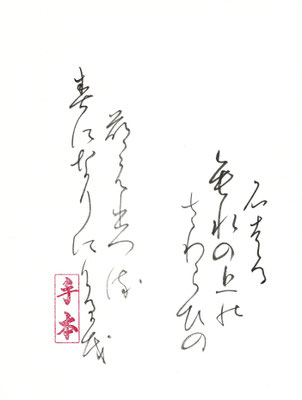 石走る
垂水の上の
さわらひの
萌え出つ流
春になりにけるも
手本